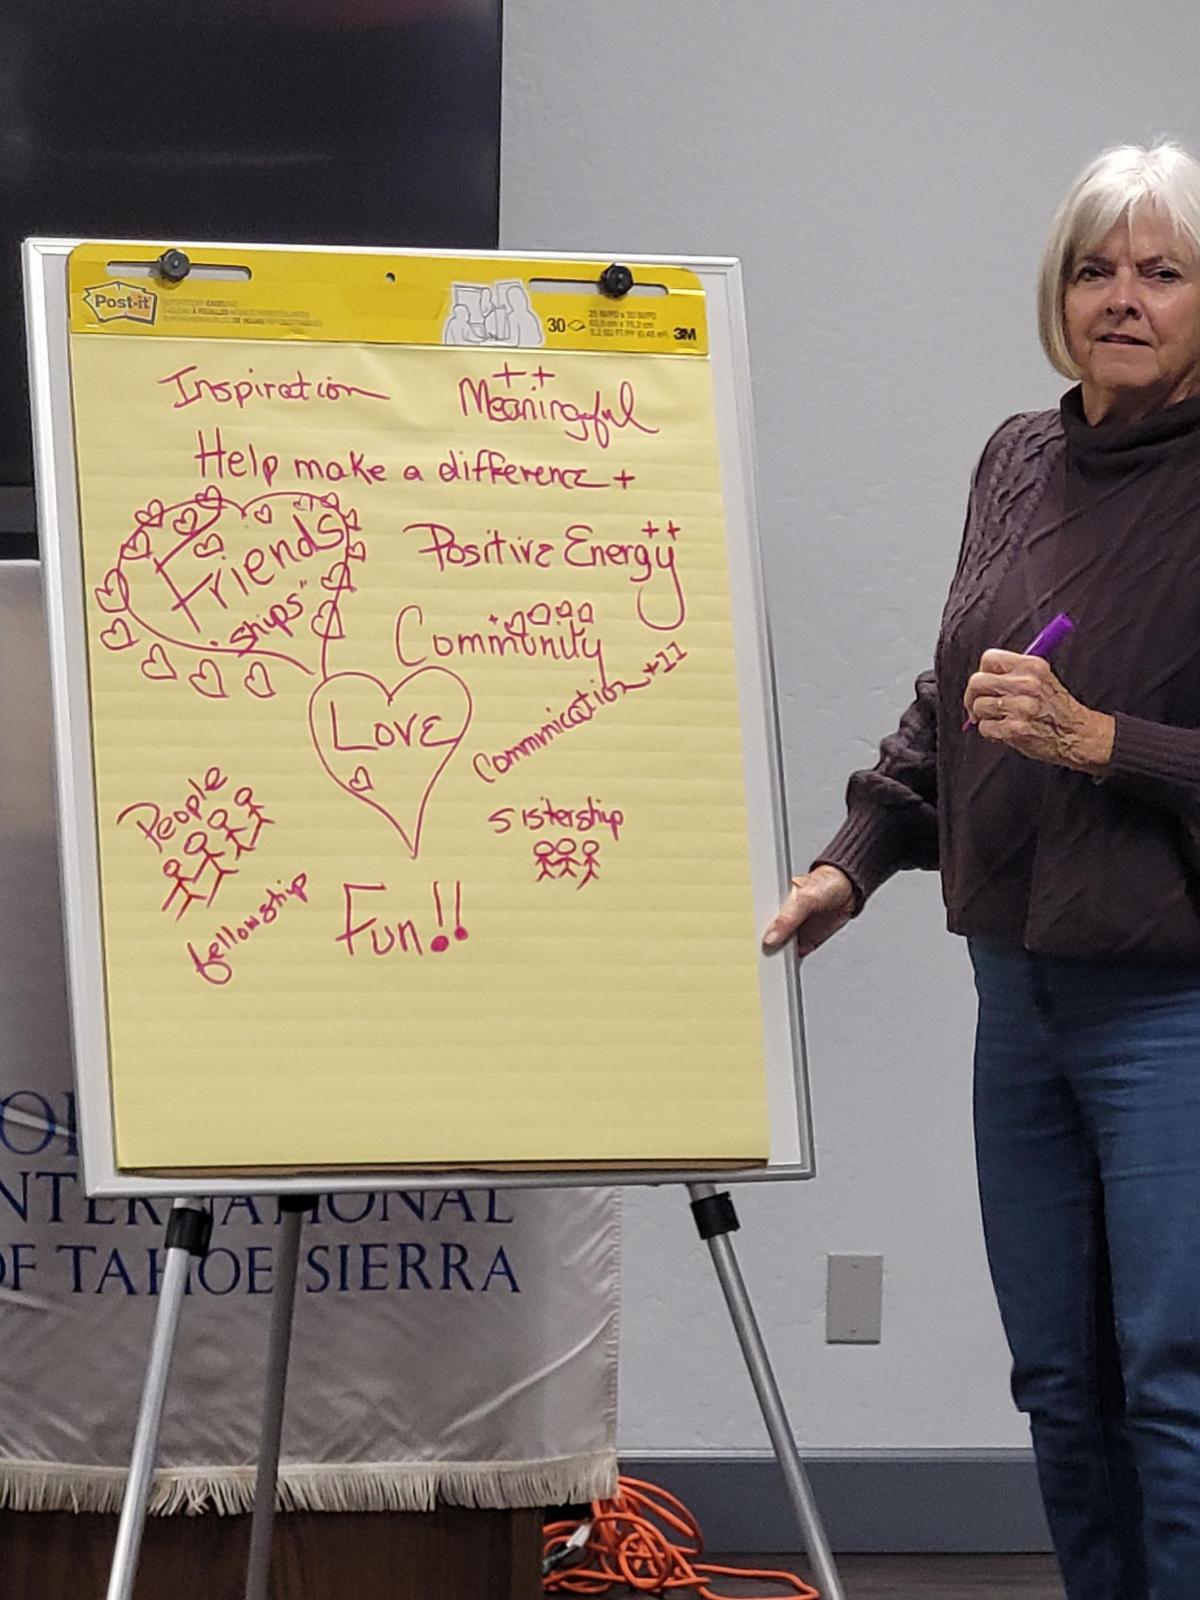 Post-it
30
3M
Inspiration
++
Meaningful
Help make a difference +
Friends
"ships"
Positive Energy ++
Community
Commnication *11
LOVE
People
Sistership
fellowship
Fun!!
NTERNATIONAL
OF TAHOE SIERRA